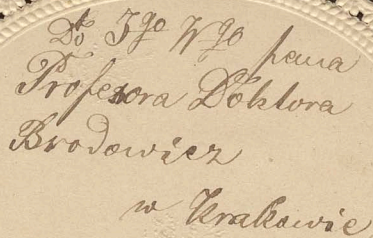 Do Jgo Wgo pana
Profesora Doktora
Brodowicz
w Krakowie